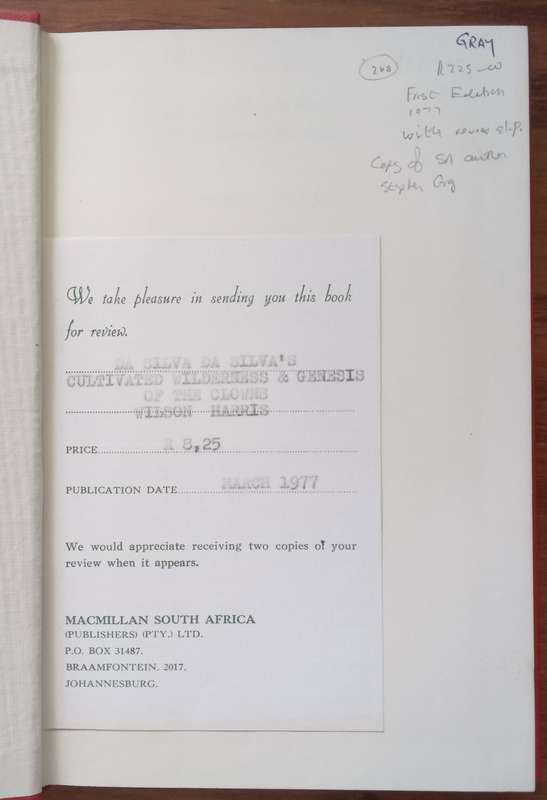 GRAY
268
R225-00
First Edition
1977
with review slip.
Copy of SA author
Stephen Gray
We take pleasure in sending you this book
for review.
DA SILVA DA SILVA'S
CULTIVATED WILDERNESS & GENESIS
OF THE CLOWNS
WILSON HARRIS
PRICE R 8,25
PUBLICATION DATE MARCH 1977
We would appreciate receiving two copies of your
review when it appears.
MACMILLAN SOUTH AFRICA
(PUBLISHERS) (PTY.) LTD.
P.O. BOX 31487.
BRAAMFONTEIN. 2017.
JOHANNESBURG.